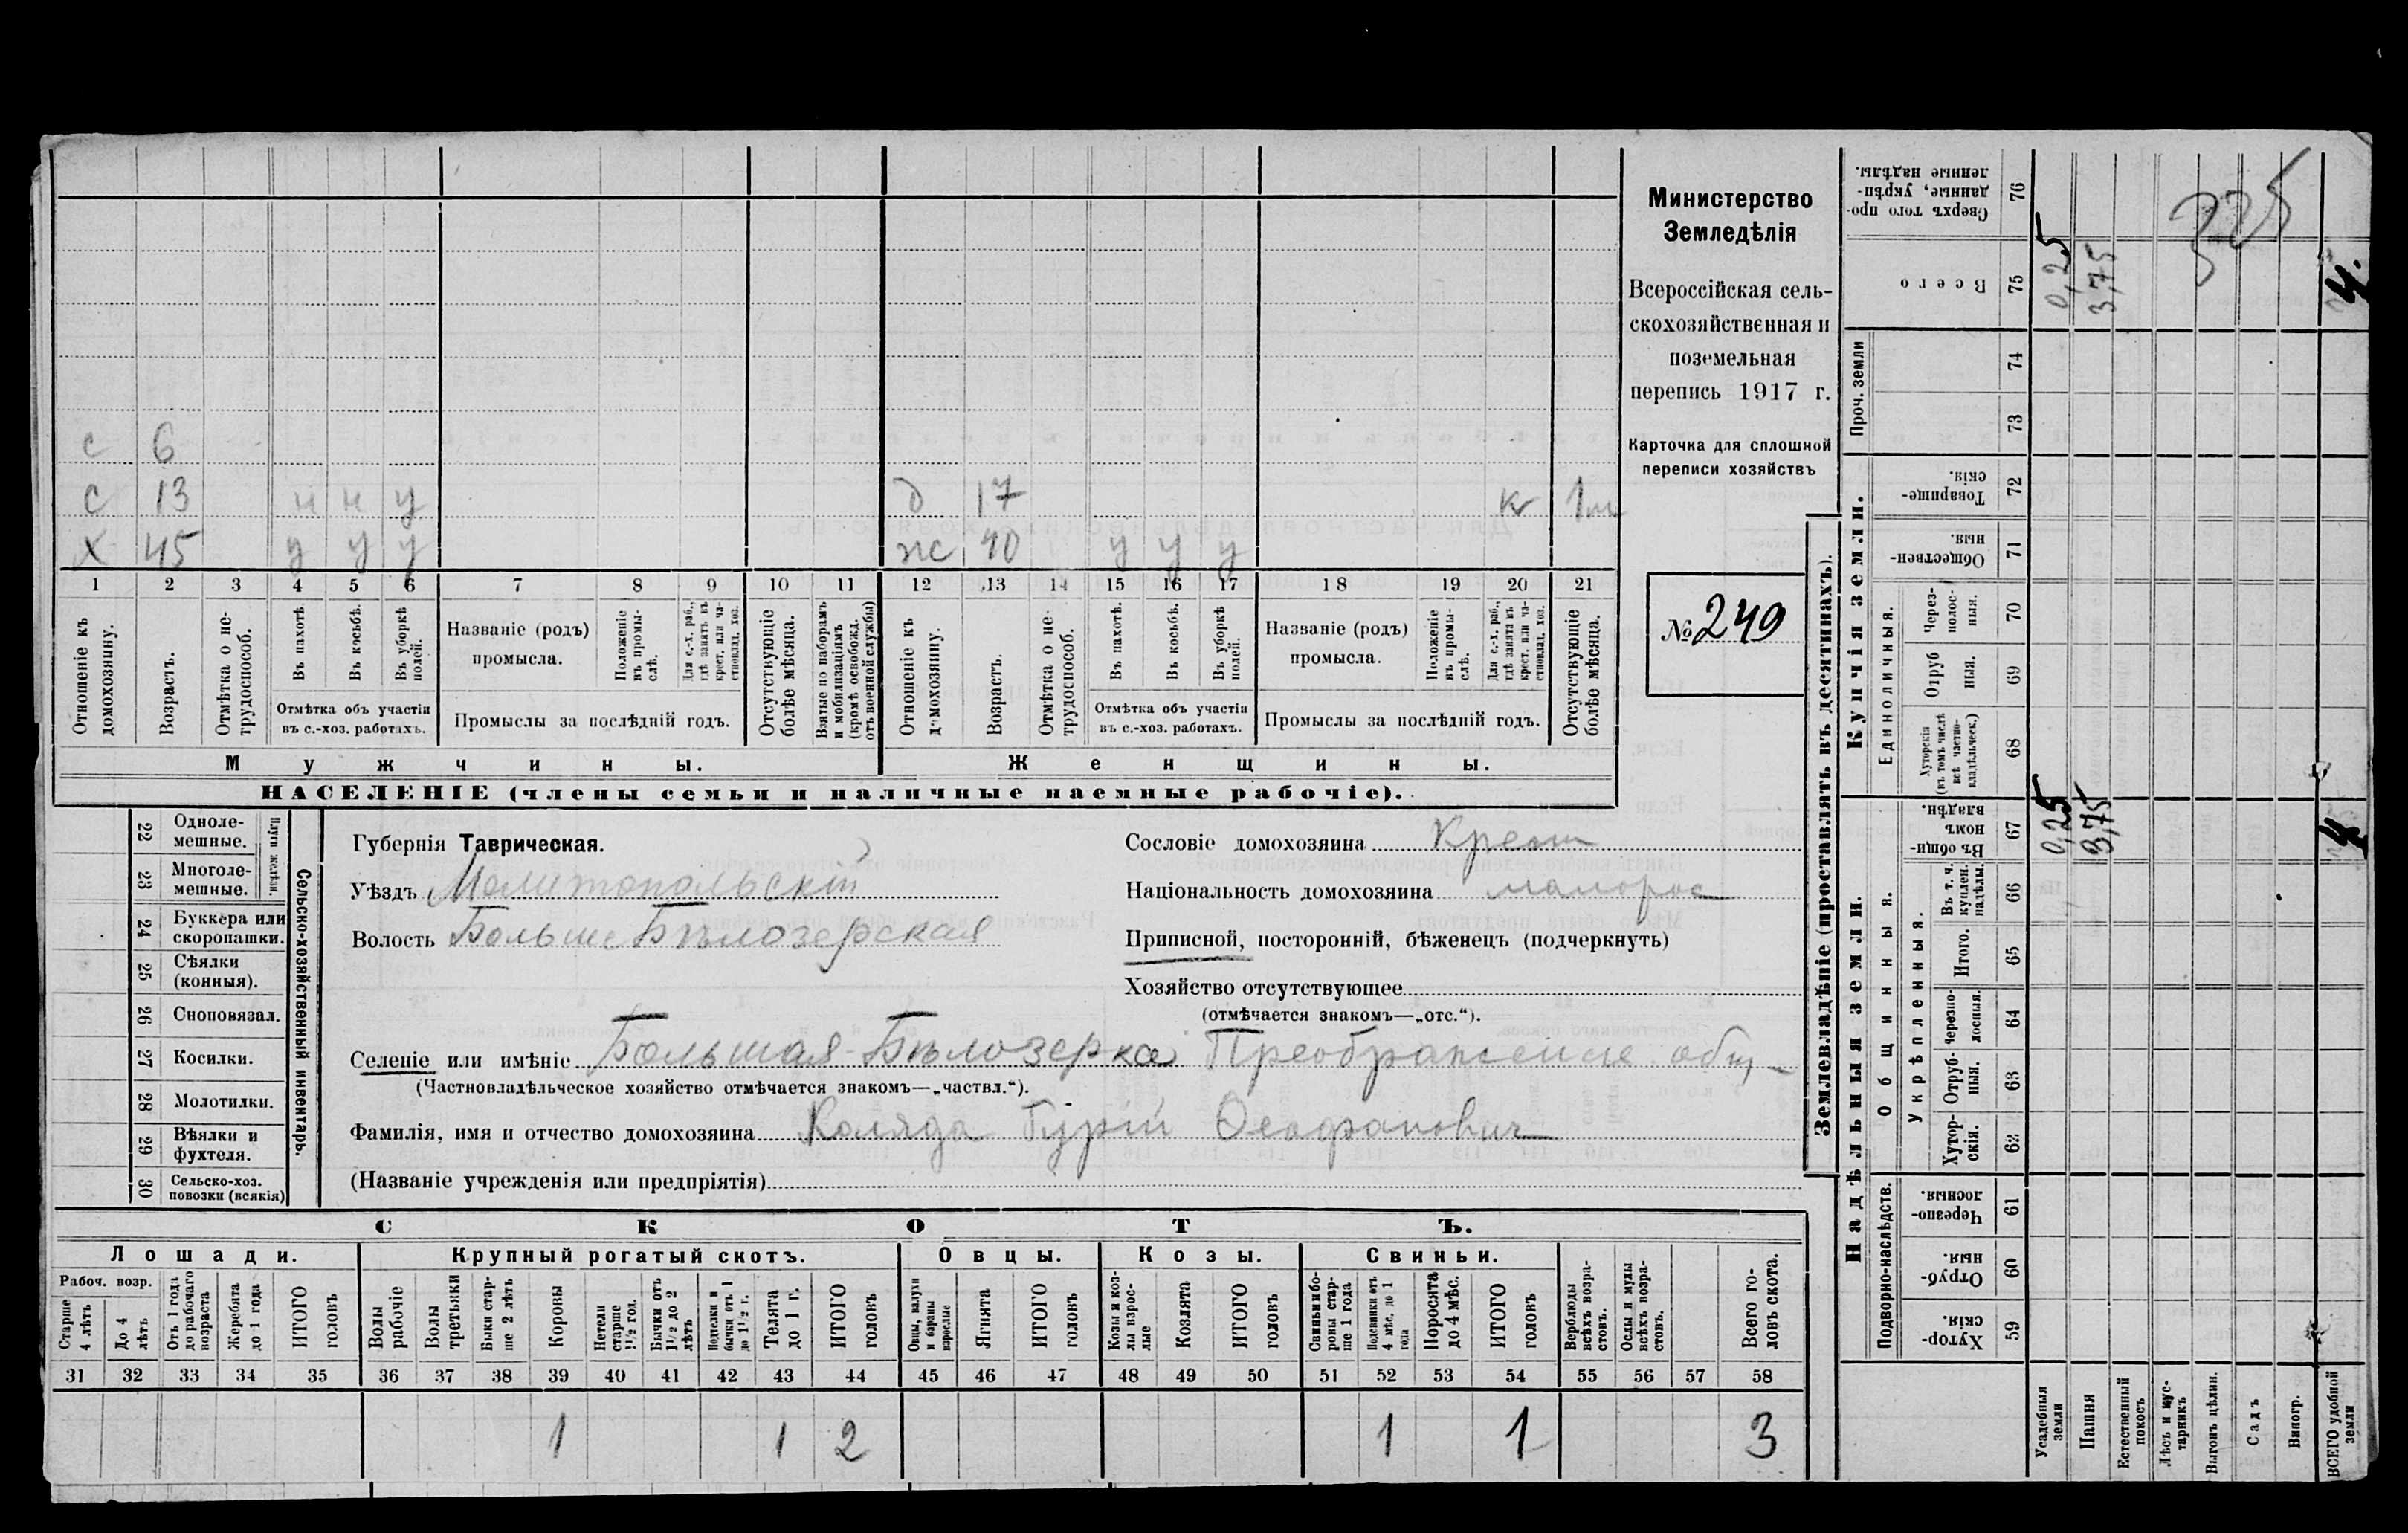 с 6
с 13 н н у д 17 к 1 м
х 45 у у у ж 40 у у у
1 2 3 4 5 6 7 8 9 10 11 12 13 14 15 16 17 18 19 20 21
Отношеніе къ домохозяину.
Возрастъ.
Отмѣтка о нетрудоспособ.
Въ пахотѣ.
Въ косьбѣ.
Въ уборкѣ полей.
Отмѣтка объ участіи
въ с.-хоз. работахъ.
Названіе (родъ)
промысла.
Положеніе въ промыслѣ.
Для с.-х. раб., гдѣ занятъ въ крест. или частновлад. хоз.
Промыслы за послѣдній годъ.
Отсутствующіе болѣе мѣсяца.
Взятые по наборамъ и мобилизаціямъ (кромѣ освобожд. отъ военной службы)
Отношеніе къ домохозяину.
Возрастъ.
Отмѣтка о нетрудоспособ.
Въ пахотѣ.
Въ косьбѣ.
Въ уборкѣ полей.
Отмѣтка объ участіи
въ с.-хоз. работахъ.
Названіе (родъ)
промысла.
Положеніе въ промыслѣ.
Для с.-х. раб., гдѣ занята въ крест. или частновлад. хоз.
Промыслы за послѣдній годъ.
Отсутствующіе болѣе мѣсяца.
Мужчины. Женщины.
НАСЕЛЕНІЕ (члены семьи и наличные наемные рабочіе).
Министерство
Земледѣлія
Всероссійская сель-
скохозяйственная и
поземельная
перепись 1917 г.
Карточка для сплошной
переписи хозяйствъ
№ 249
Сельско-хозяйственный инвентарь.
Плуги желѣзн.
22 Одноле-
мешные.
23 Многоле-
мешные.
24 Буккера или
скоропашки.
25 Сѣялки
(конныя).
26 Сноповязал.
27 Косилки.
28 Молотилки.
29 Вѣялки и
фухтеля.
30 Сельско-хоз.
повозки (всякія)
Губернія Таврическая.
Уѣздъ Мелитопольскій
Волость Больше Бѣлозерская
Сословіе домохозяина Крест
Національность домохозяина малорос
Приписной, посторонній, бѣженецъ (подчеркнуть)
Хозяйство отсутствующее
(отмѣчается знакомъ—„отс.“).
Селеніе или имѣніе Большая-Бѣлозерка Преображенске общ,
(Частновладѣльческое хозяйство отмѣчается знакомъ—„частвл.“).
Фамилія, имя и отчество домохозяина Коляда Гурій Ѳеофанович
(Названіе учрежденія или предпріятія)
СКОТЪ.
Лошади. Крупный рогатый скотъ. Овцы. Козы. Свиньи.
Рабоч. возр.
Старше 4 лѣтъ
До 4 лѣтъ
Отъ 1 года до рабочаго возраста
Жеребята до 1 года
ИТОГО головъ
Волы рабочіе
Волы третьяки
Быки старше 2 лѣтъ
Коровы
Нетели старше 1½ год.
Бычки отъ 1½ до 2 лѣтъ
Подтелки и бычки отъ 1 до 1½ г.
Телята до 1 г.
ИТОГО головъ
Овцы, валухи и бараны взрослые
Ягнята
ИТОГО головъ
Козы и козлы взрослые
Козлята
ИТОГО головъ
Свиньи и боровы старше 1 года
Подсвинки отъ 4 мѣс. до 1 года
Поросята до 4 мѣс.
ИТОГО головъ
Верблюды всѣхъ возрастовъ.
Ослы и мулы всѣхъ возрастовъ.
Всего головъ скота.
31 32 33 34 35 36 37 38 39 40 41 42 43 44 45 46 47 48 49 50 51 52 53 54 55 56 57 58
1 1 2 1 1 3
Землевладѣніе (проставлять въ десятинахъ).
Надѣльныя земли.
Купчія земли.
Проч. земли
Подворно-наслѣдств.
Общинныя.
Укрѣпленныя.
Единоличныя.
Сверхъ того проданные, укрѣпленные надѣлы. 76
Всего 75 0,25 3,75 4.
74
73
Товарищескія. 72
Общественныя. 71
Черезполосныя. 70
Отрубныя. 69
Хуторскія (въ томъ числѣ всѣ частновладѣльческ.) 68
Въ общинномъ владѣн. 67 0,25 3,75 4
Въ т. ч. куплен. надѣлы. 66
Итого. 65
Черезполосныя. 64
Отрубныя. 63
Хуторскія. 62
Черезполосныя. 61
Отрубныя. 60
Хуторскія. 59
Усадебныя земли
Пашня
Естественный покосъ
Лѣсъ и кустарникъ
Выгонъ цѣлин.
Садъ
Виногр.
ВСЕГО удобной земли
325